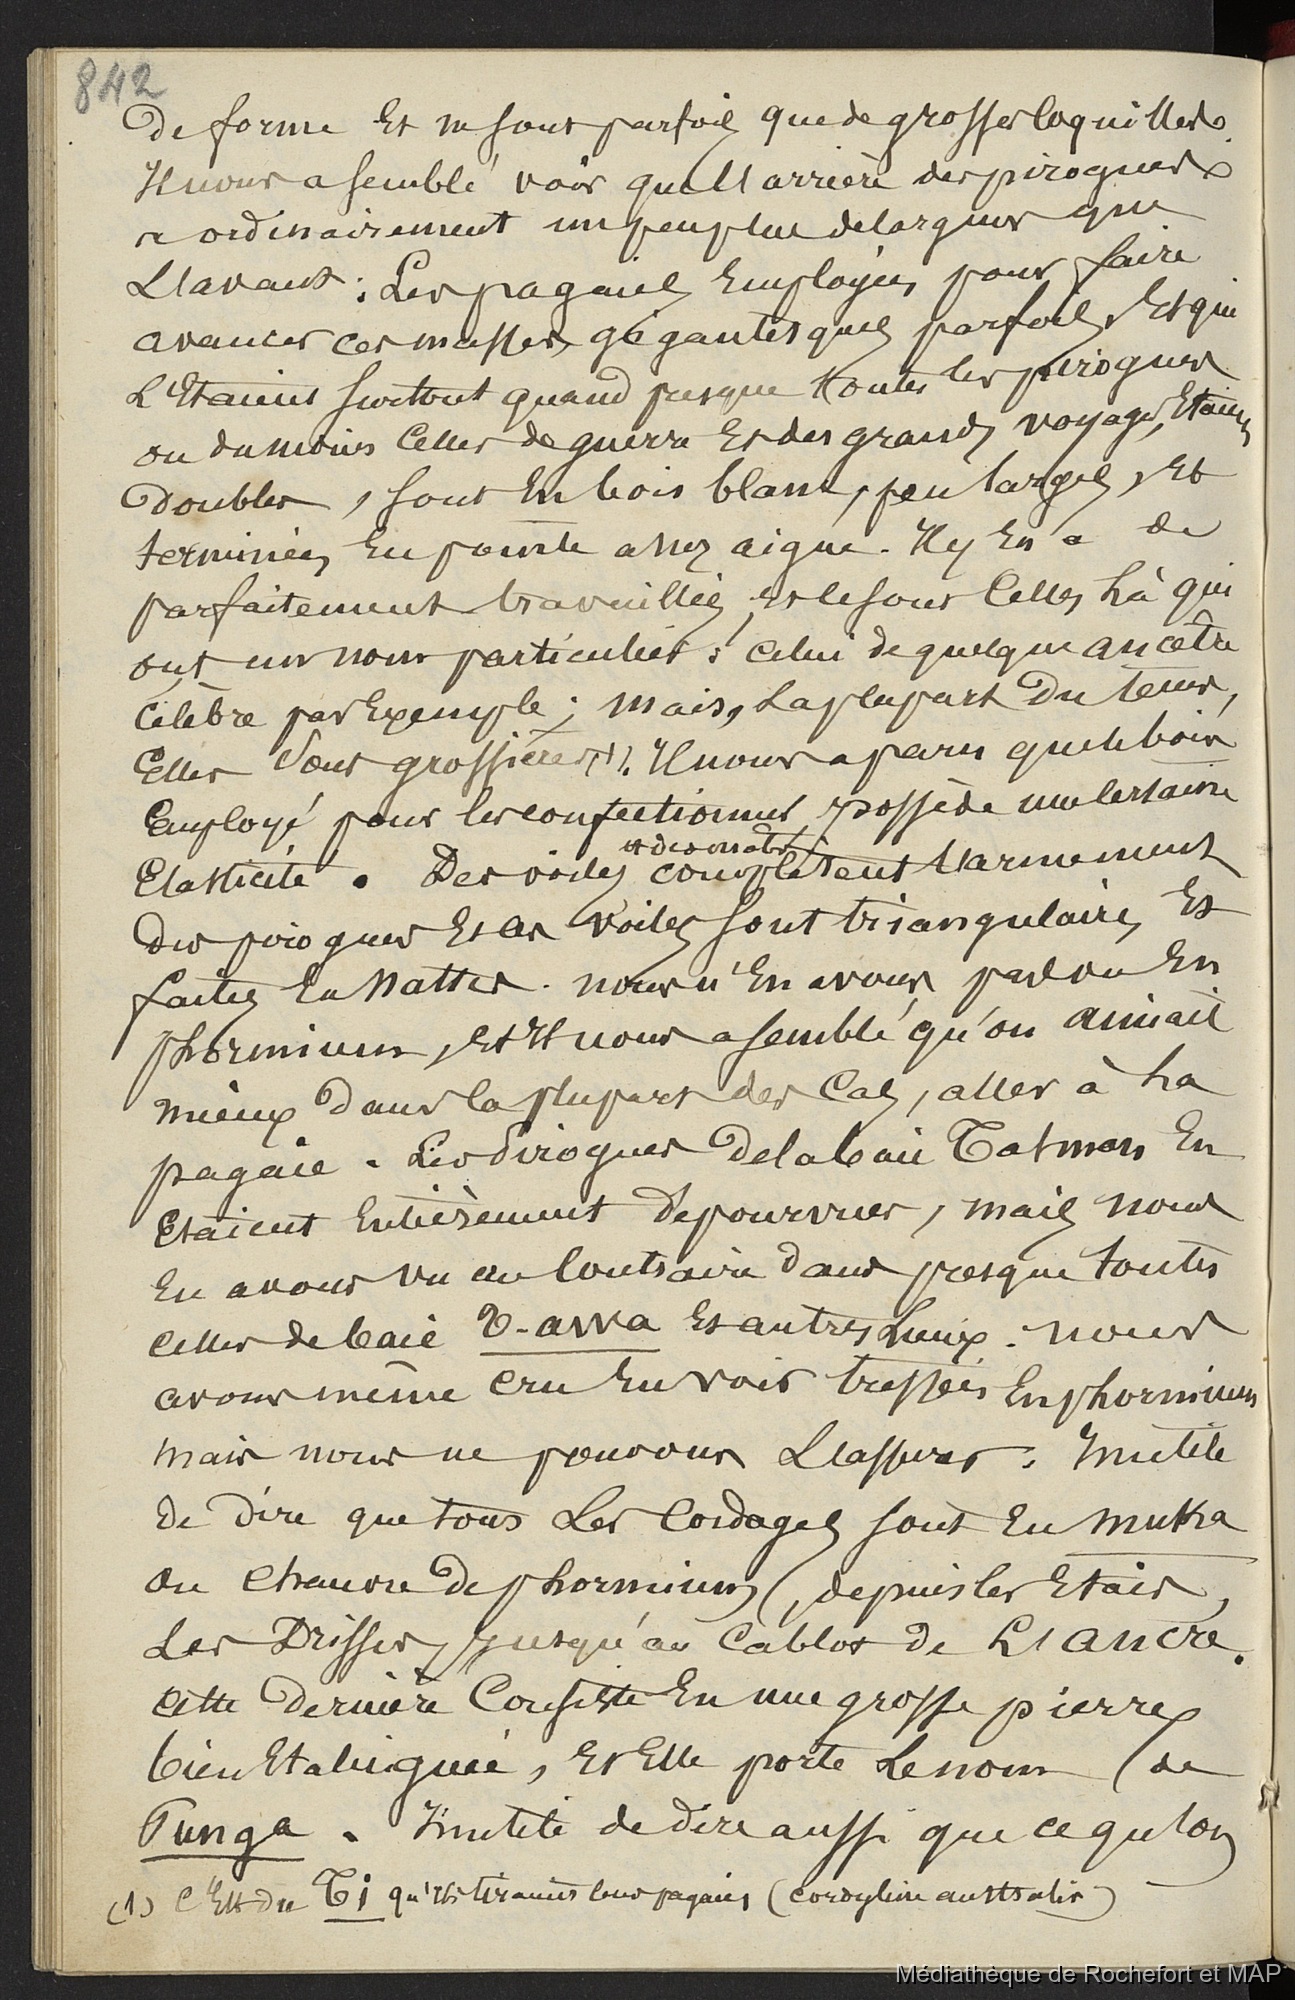 842
de forme et ne sont parfois que de grosses coquilles.
Il nous a semblé voir que l'arrière des pirogues
a ordinairement un peu plus de largeur que
l'avant ; Les pagaies employées pour faire
avancer ces masses gigantesques parfois, et qui
l'étaient surtout quand presque toutes les pirogues
ou du moins celles de guerre et des grands voyages, étaient
doubles, sont en bois blanc, peu larges, et
terminées en pointe assez aigue. Il y en a de
parfaitement travaillées, et ce sont celles là qui
ont un nom particulier : celui de quelque ancêtre
célèbre par exemple ; mais, la plupart du tems,
elles sont grossières (1). Il nous a paru que le bois
employé pour les confectionner possède une certaine
élasticité. Des voiles et des mâts complètent l'armement
des pirogues et ces voiles sont triangulaires et
faites en nattes. nous n'en avons pas vu en
phormium, et il nous a semblé qu'on aimait
mieux dans la plupart des cas, aller à la
pagaie. Les pirogues de la baie Tasman en
étaient entièrement dépourvues, mais nous
en avons vu au contraire dans presque toutes
celles de baie T-awa et autres lieux. nous
avons même cru en voir tressées en phormium
mais nous ne pouvons l'assurer. Inutile
de dire que tous les cordages sont en muka
ou chanvre de phormium, depuis les étais,
les drisses, jusqu'au cablot de l'ancre.
cette dernière consiste en une grosse pierre
bien étalinguée, et elle porte le nom de
Punga. Inutile de dire aussi que ce qu'on
(1) C'est du Ti qu'ils tiraient leurs pagaies (cordyline australis)
Médiathèque de Rochefort et MAP